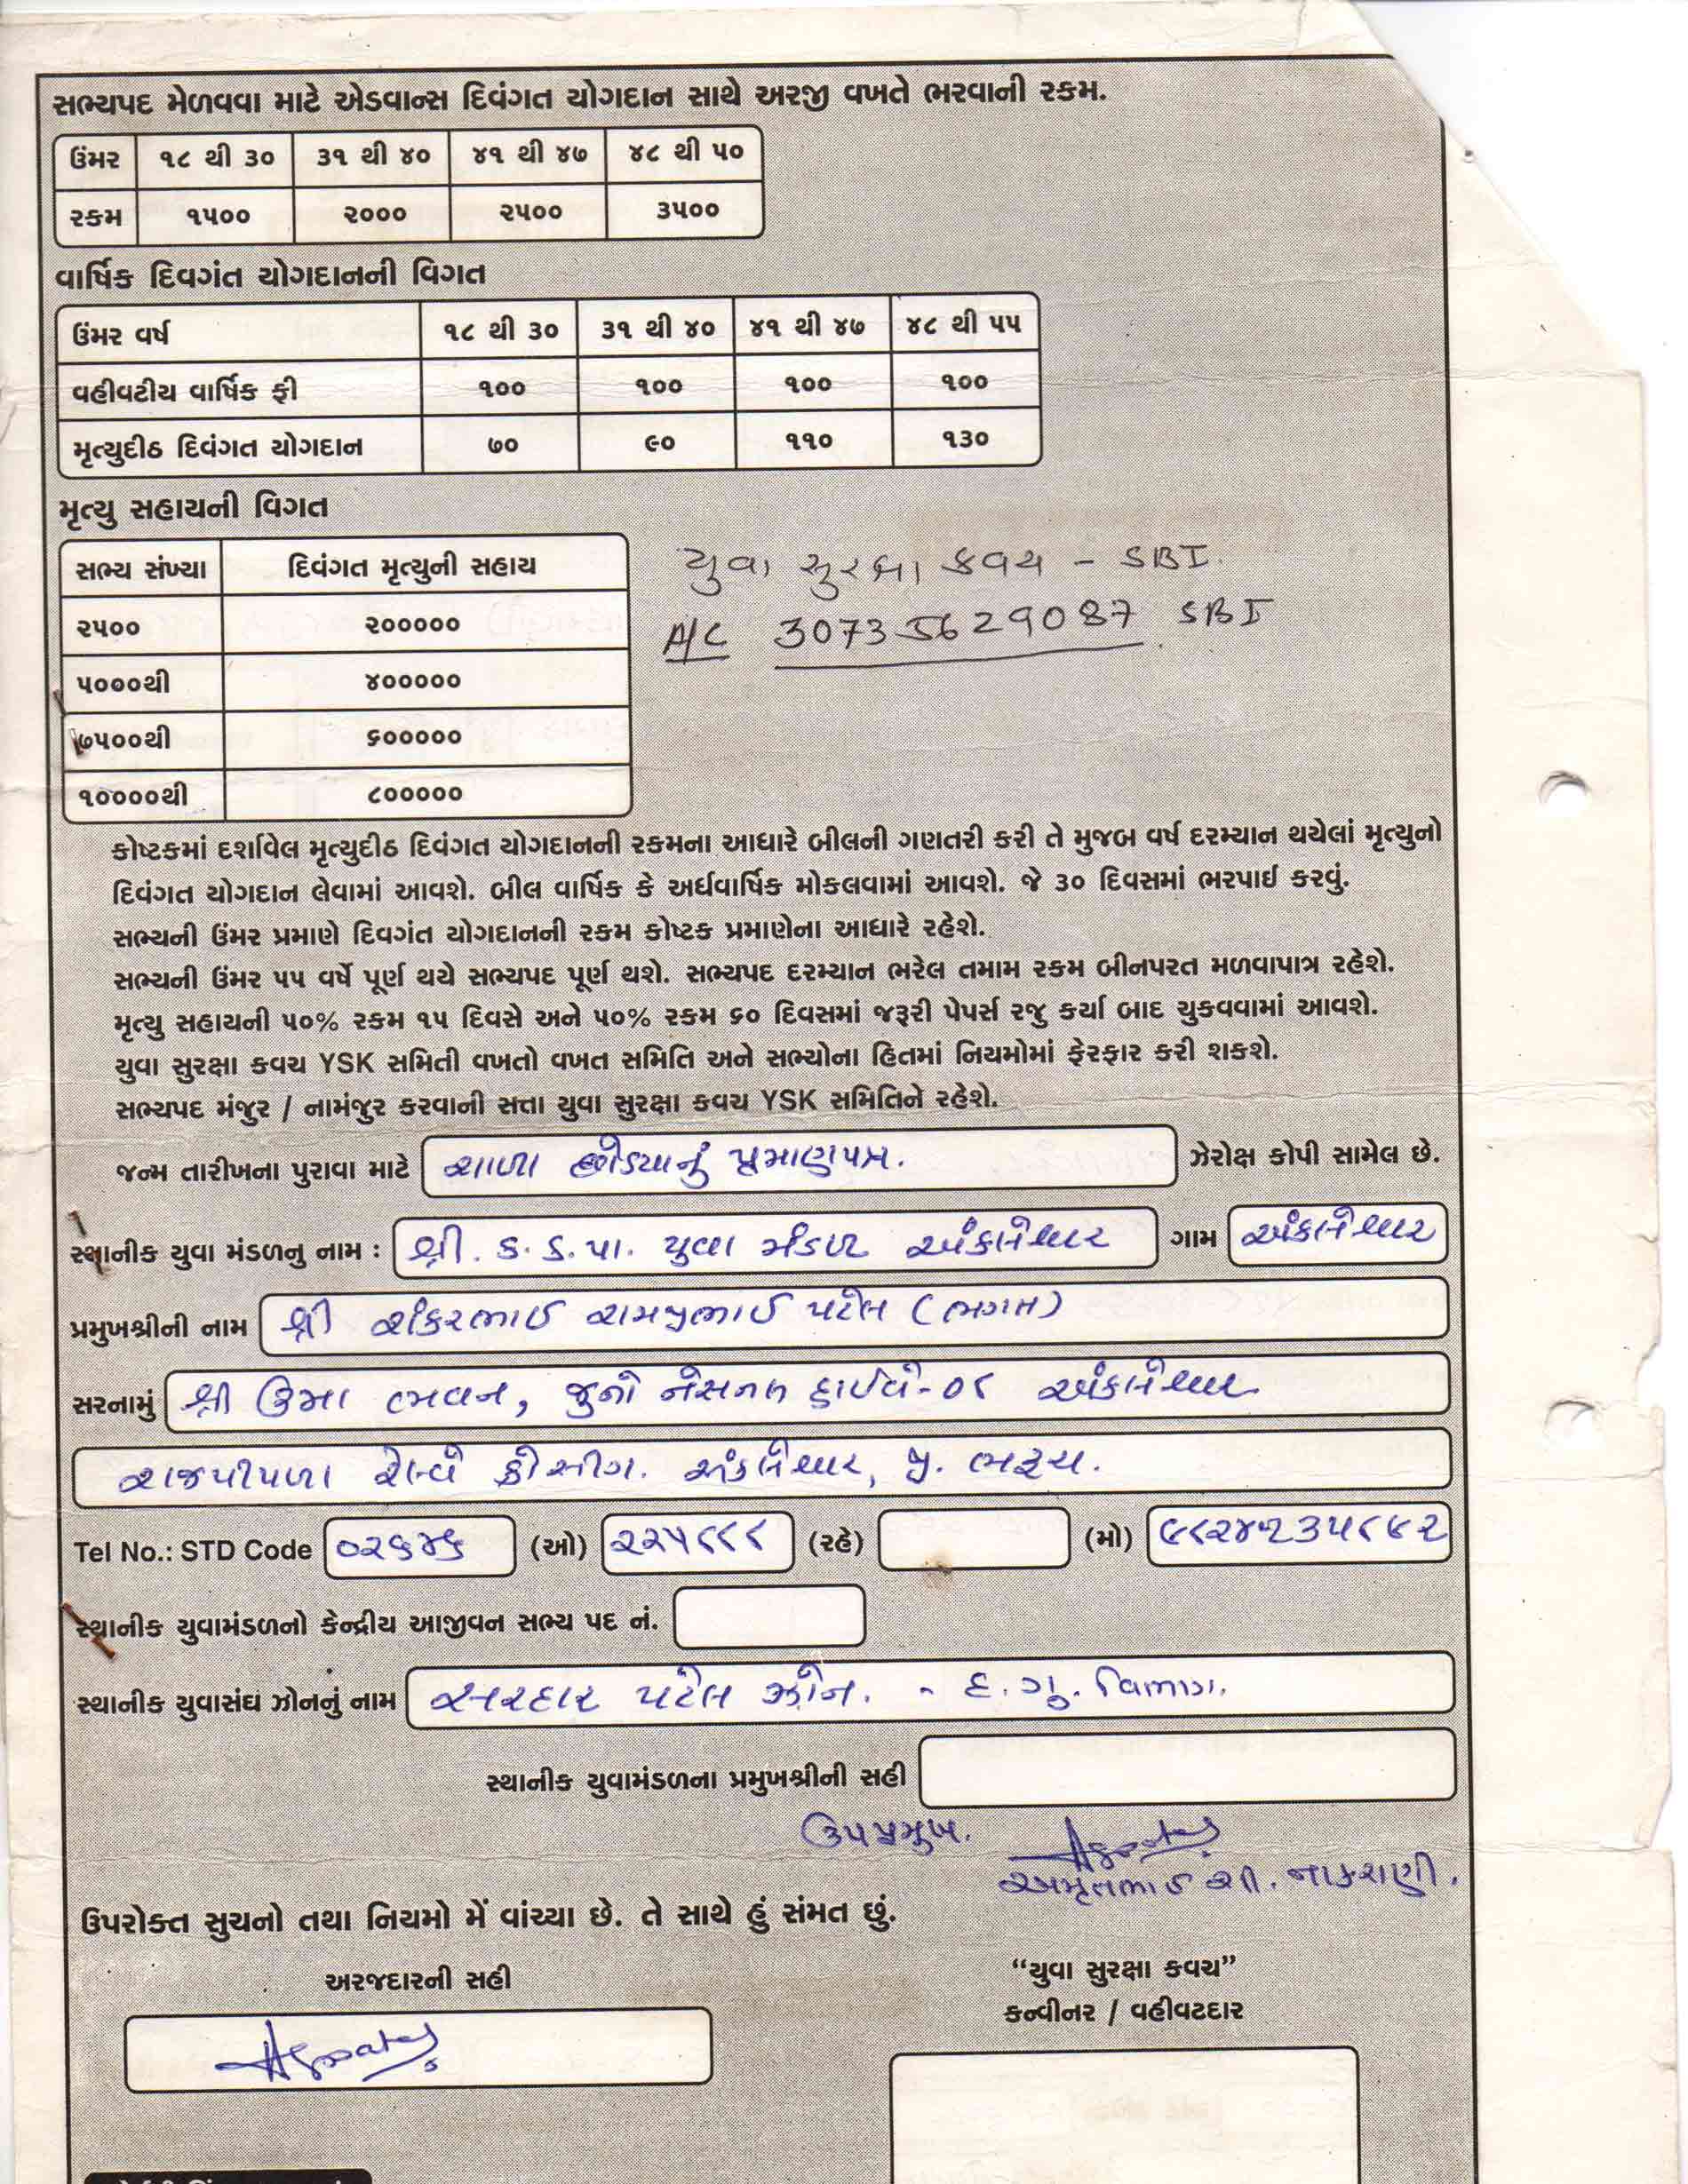 સભ્યપદ મેળવવા માટે એડવાન્સ દિવંગત યોગદાન સાથે અરજી વખતે ભરવાની રકમ.
ઉંમર ૧૮ થી ૩૦ ૩૧ થી ૪૦ ૪૧ થી ૪૭ ૪૮ થી ૫૦
રકમ ૧૫૦૦ ૨૦૦૦ ૨૫૦૦ ૩૫૦૦
વાર્ષિક દિવગંત યોગદાનની વિગત
ઉંમર વર્ષ ૧૮ થી ૩૦ ૩૧ થી ૪૦ ૪૧ થી ૪૭ ૪૮ થી ૫૫
વહીવટીય વાર્ષિક ફી ૧૦૦ ૧૦૦ ૧૦૦ ૧૦૦
મૃત્યુદીઠ દિવંગત યોગદાન ૭૦ ૯૦ ૧૧૦ ૧૩૦
મૃત્યુ સહાયની વિગત
સભ્ય સંખ્યા દિવંગત મૃત્યુની સહાય
૨૫૦૦ ૨૦૦૦૦૦
૫૦૦૦થી ૪૦૦૦૦૦
૭૫૦૦થી ૬૦૦૦૦૦
૧૦૦૦૦થી ૮૦૦૦૦૦
યુવા સુરક્ષા કવચ - SBI.
A/C 30735629087 SBI
કોષ્ટકમાં દર્શાવેલ મૃત્યુદીઠ દિવંગત યોગદાનની રકમના આધારે બીલની ગણતરી કરી તે મુજબ વર્ષ દરમ્યાન થયેલાં મૃત્યુનો
દિવંગત યોગદાન લેવામાં આવશે. બીલ વાર્ષિક કે અર્ધવાર્ષિક મોકલવામાં આવશે. જે ૩૦ દિવસમાં ભરપાઈ કરવું.
સભ્યની ઉંમર પ્રમાણે દિવગંત યોગદાનની રકમ કોષ્ટક પ્રમાણેના આધારે રહેશે.
સભ્યની ઉંમર ૫૫ વર્ષે પૂર્ણ થયે સભ્યપદ પૂર્ણ થશે. સભ્યપદ દરમ્યાન ભરેલ તમામ રકમ બીનપરત મળવાપાત્ર રહેશે.
મૃત્યુ સહાયની ૫૦% રકમ ૧૫ દિવસે અને ૫૦% રકમ ૬૦ દિવસમાં જરૂરી પેપર્સ રજુ કર્યા બાદ ચુકવવામાં આવશે.
યુવા સુરક્ષા કવચ YSK સમિતી વખતો વખત સમિતિ અને સભ્યોના હિતમાં નિયમોમાં ફેરફાર કરી શકશે.
સભ્યપદ મંજુર / નામંજુર કરવાની સત્તા યુવા સુરક્ષા કવચ YSK સમિતિને રહેશે.
જન્મ તારીખના પુરાવા માટે શાળા છોડયાનું પ્રમાણપત્ર. ઝેરોક્ષ કોપી સામેલ છે.
સ્થાનીક યુવા મંડળનુ નામ : શ્રી. ક. ક. પા. યુવા મંડળ અંકલેશ્વર ગામ અંકલેશ્વર
પ્રમુખશ્રીની નામ શ્રી શંકરભાઈ રામજીભાઈ પટેલ (ભગત)
સરનામું શ્રી ઉમા ભવન, જુનો નેસનલ હાઈવે-૦૮ અંકલેશ્વર
રાજપીપળા રેલ્વે ક્રોસીગ. અંકલેશ્વર, જી. ભરૂચ.
Tel No.: STD Code ૦૨૬૪૬ (ઓ) ૨૨૫૮૮૮ (રહે) (મો) ૯૮૨૪૧૩૫૮૪૨
સ્થાનીક યુવામંડળનો કેન્દ્રીય આજીવન સભ્ય પદ નં.
સ્થાનીક યુવાસંઘ ઝોનનું નામ સરદાર પટેલ ઝોન. - દ. ગુ. વિભાગ.
સ્થાનીક યુવામંડળના પ્રમુખશ્રીની સહી
ઉપપ્રમુખ.
અમૃતભાઈ શી. નાકરાણી.
ઉપરોક્ત સુચનો તથા નિયમો મેં વાંચ્યા છે. તે સાથે હું સંમત છું.
અરજદારની સહી
“યુવા સુરક્ષા કવચ”
કન્વીનર / વહીવટદાર